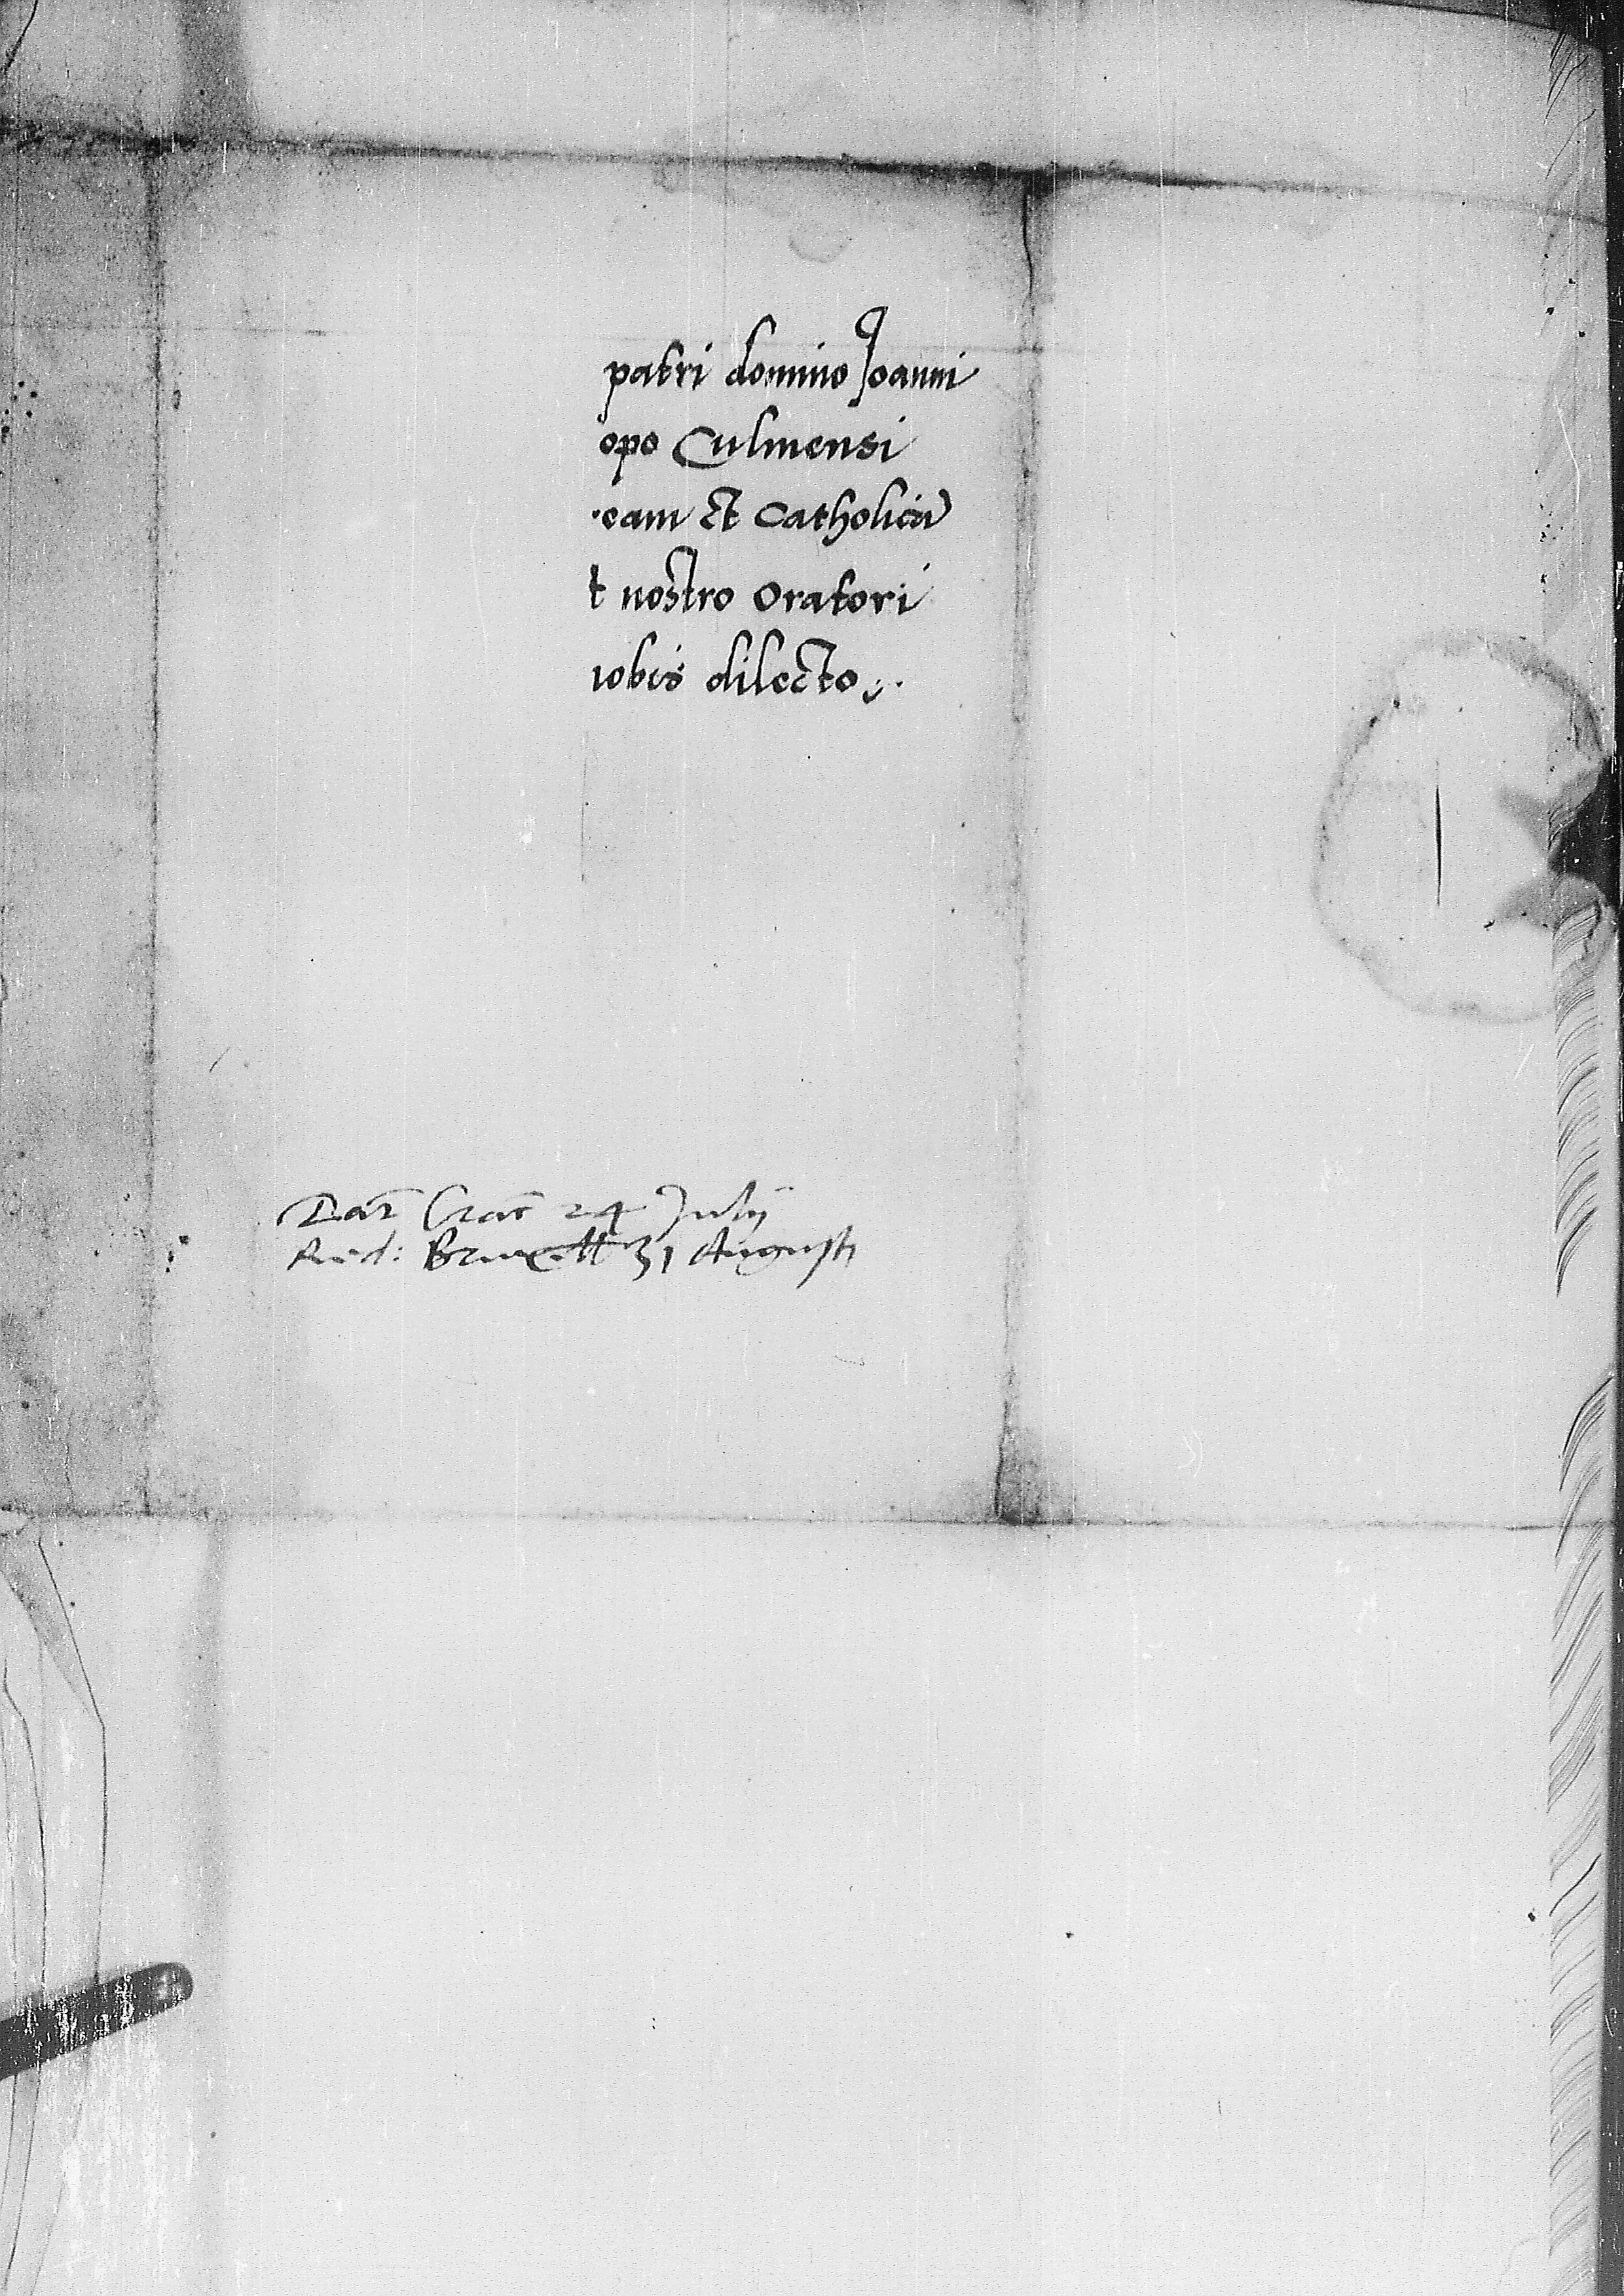 patri domino Joanni
opo Culmensi
eam et Catholicā
t nostro Oratori
obis dilecto
Dat̄ Crac̄ 24 Julij
Red: Bruxell 31 Augusti